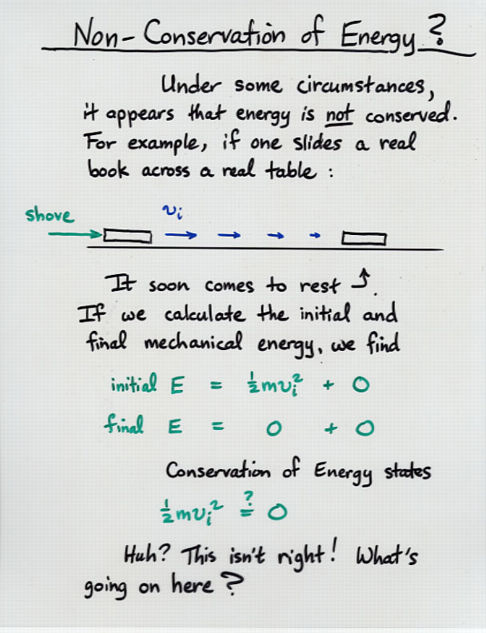 Non-Conservation of Energy?
Under some circumstances,
it appears that energy is not conserved.
For example, if one slides a real
book across a real table :
shove vᵢ
It soon comes to rest ↑.
If we calculate the initial and
final mechanical energy, we find
initial E = ½mvᵢ² + 0
final E = 0 + 0
Conservation of Energy states
½mvᵢ² ≟ 0
Huh? This isn't right! What's
going on here?